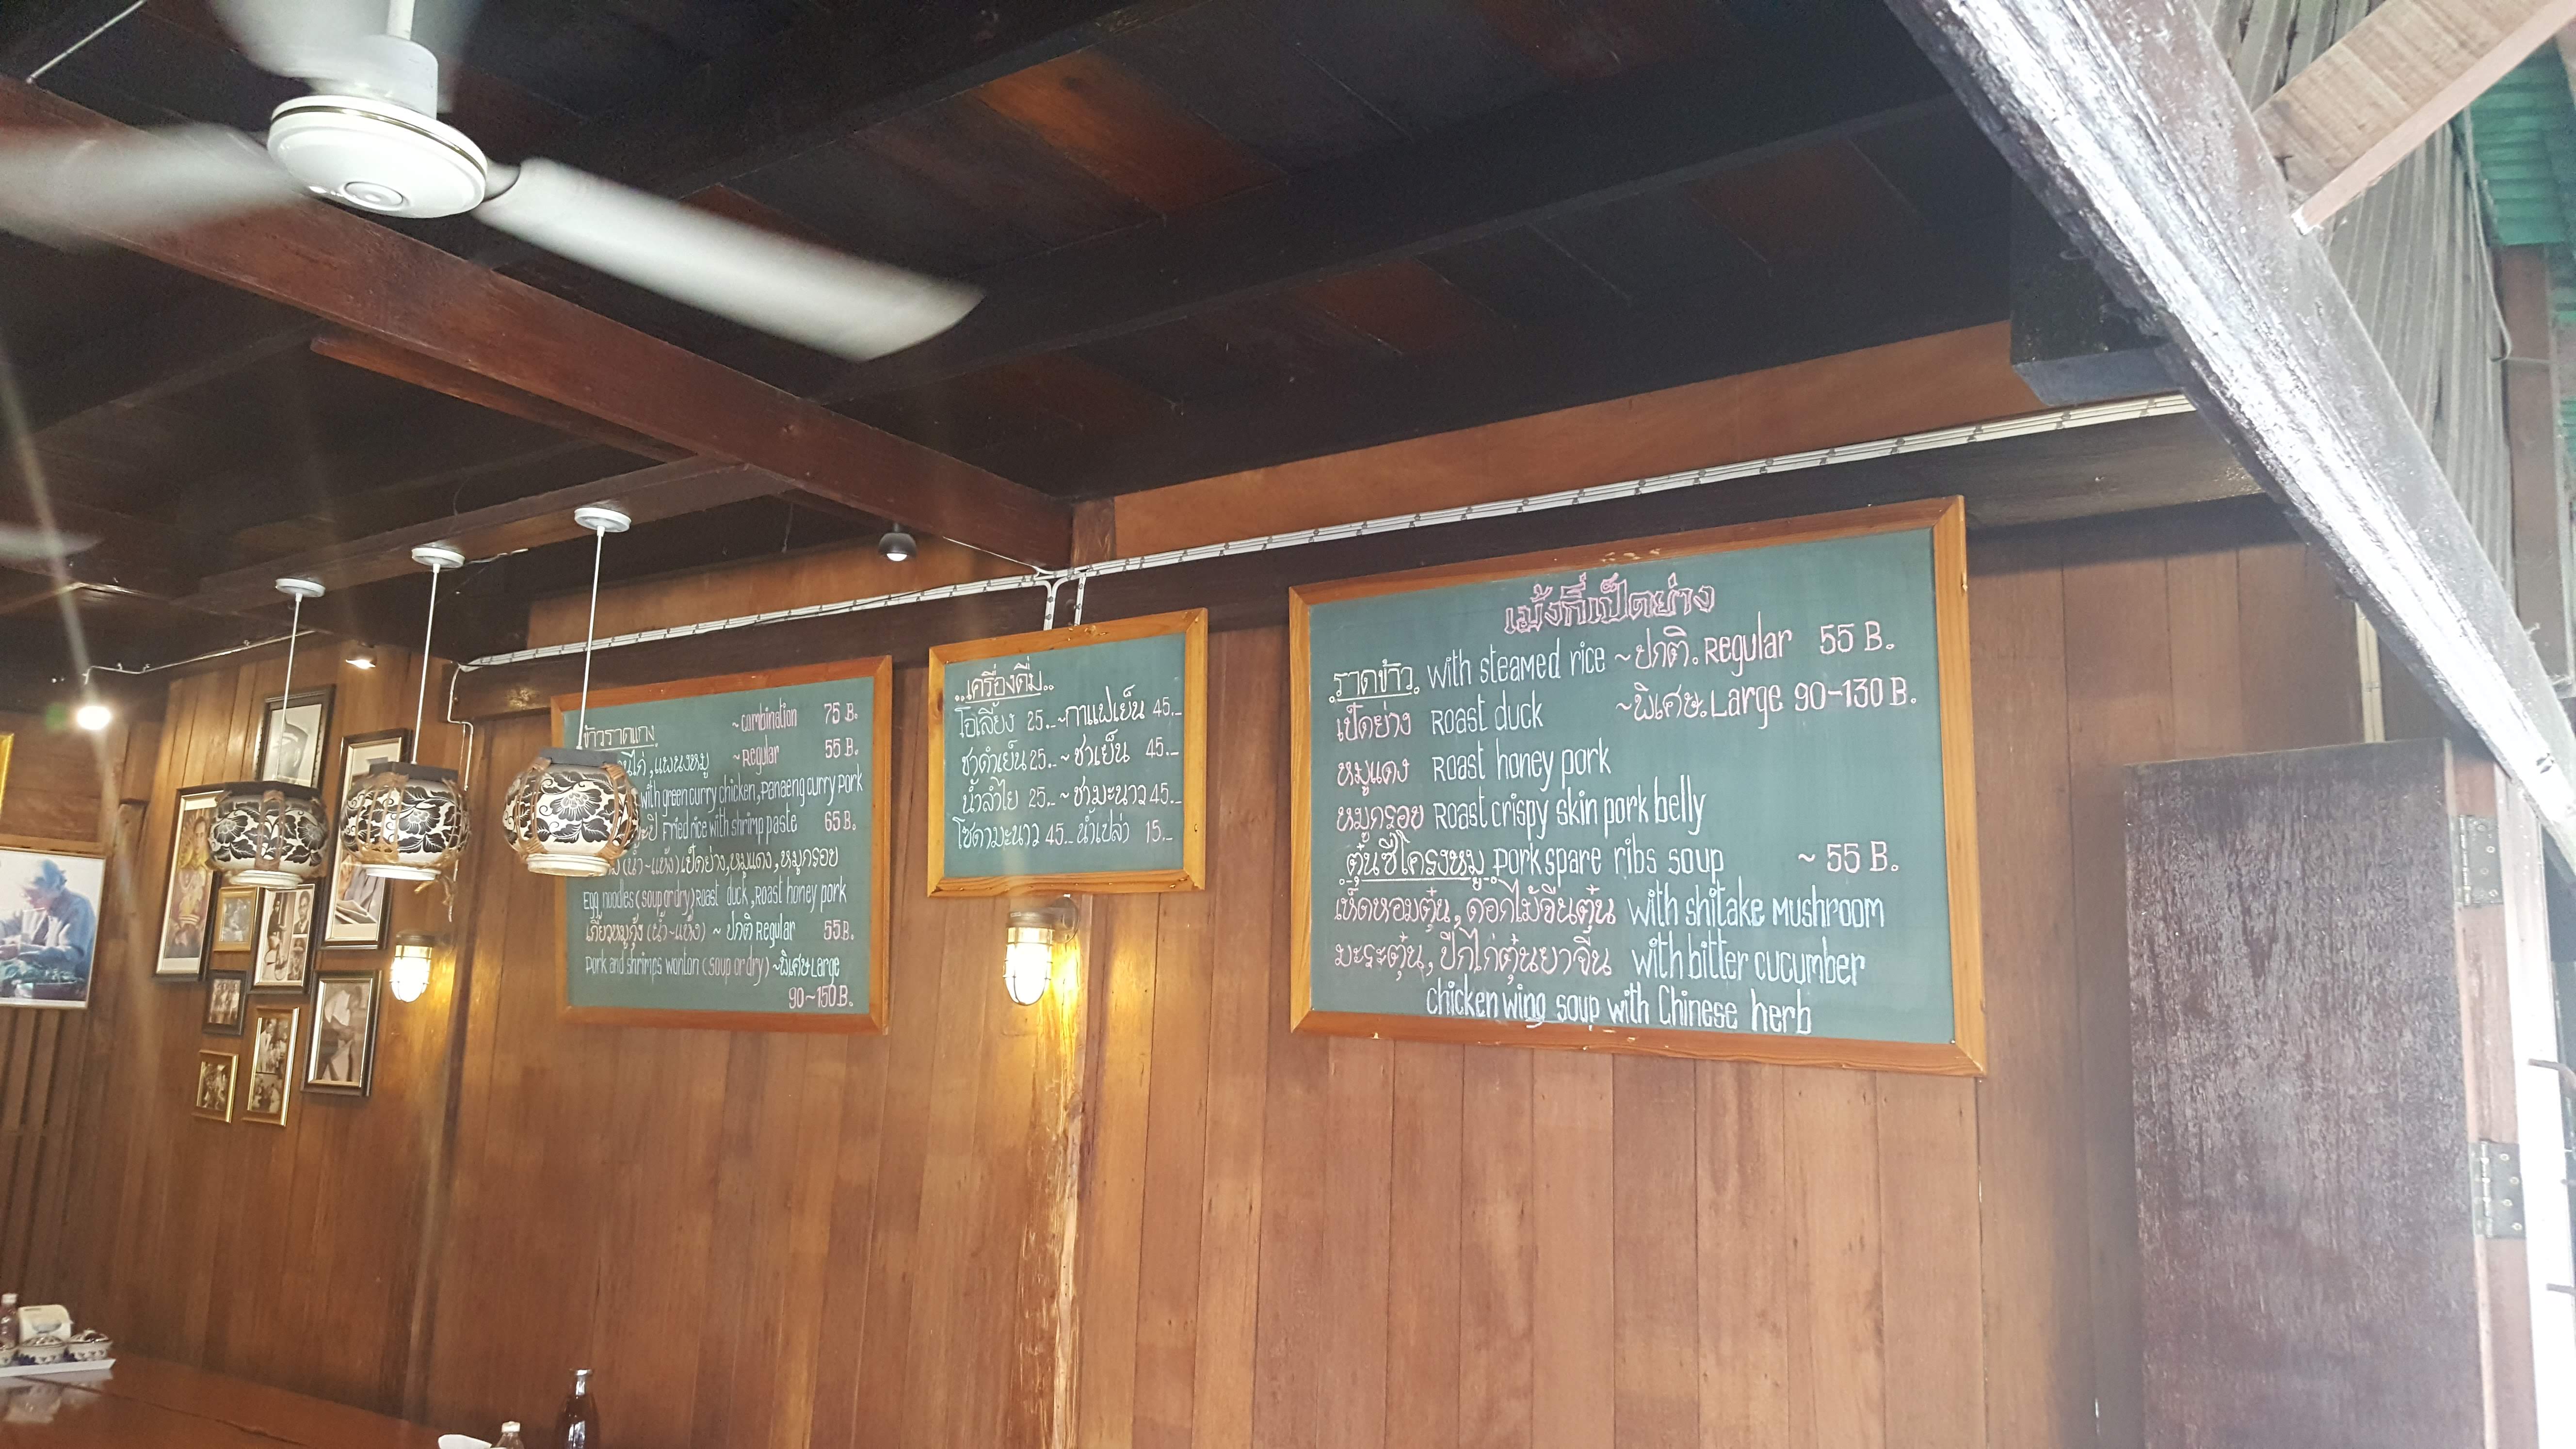 ข้าวราดแกง ~combination 75 B.
~Regular 55 B.
,แพนงหมู
with green curry chicken, panaeng curry pork
Fried rice with shrimp paste 65 B.
(น้ำ~แห้ง) เป็ดย่าง, หมูแดง, หมูกรอบ
Egg noodles (soup or dry) Roast duck, Roast honey pork
เกี๊ยวหมูกุ้ง (น้ำ~แห้ง) ~ ปกติ Regular 55 B.
Pork and shrimps wonton (soup or dry) ~พิเศษ Large
90~150 B.
..เครื่องดื่ม..
โอเลี้ยง 25.- ~กาแฟเย็น 45.-
ชาดำเย็น 25.- ~ ชาเย็น 45.-
น้ำลำไย 25.- ~ ชามะนาว 45.-
โซดามะนาว 45.- น้ำเปล่า 15.-
เม้งกี่เป็ดย่าง
ราดข้าว with steamed rice ~ปกติ. Regular 55 B.
เป็ดย่าง Roast duck ~พิเศษ. Large 90-130 B.
หมูแดง Roast honey pork
หมูกรอบ Roast crispy skin pork belly
ตุ๋นซี่โครงหมู pork spare ribs soup ~ 55 B.
เห็ดหอมตุ๋น, ดอกไม้จีนตุ๋น with shitake Mushroom
มะระตุ๋น, ปีกไก่ตุ๋นยาจีน with bitter cucumber
chicken wing soup with Chinese herb